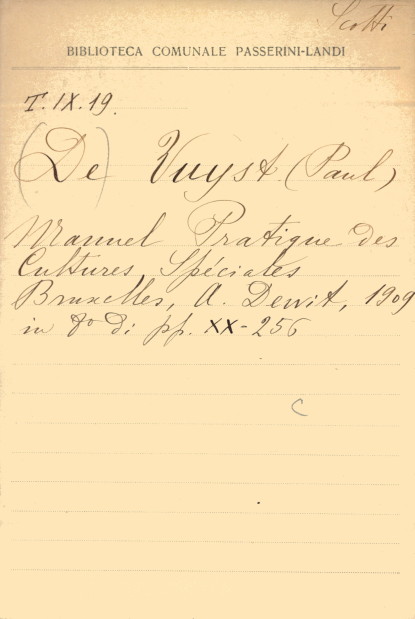 Scotti
BIBLIOTECA COMUNALE PASSERINI-LANDI
T. IX. 19.
(De) Vuyst (Paul)
Manuel Pratique des
Cultures Spéciales
Bruxelles, A. Dewit, 1909
in 8º di pp. XX-256
C